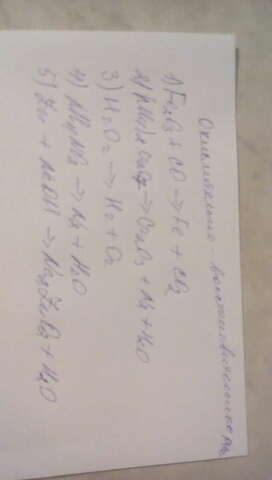 Окислительно - восстановительные
1) Fe₂O₃ + CO → Fe + CO₂
2) (NH₄)₂Cr₂O₇ → Cr₂O₃ + N₂ + H₂O
3) H₂O₂ → H₂ + O₂
4) NH₄NO₂ → N₂ + H₂O
5) ZnO + NaOH → Na₂ZnO₂ + H₂O